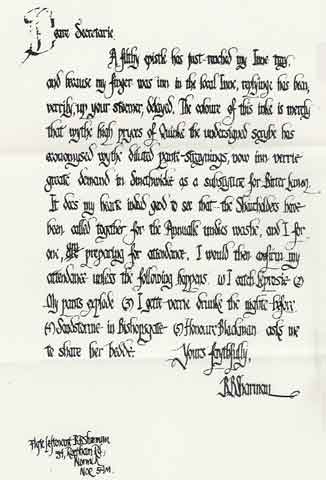 Deare Secretarie.
A filthy epistle has just reached my Inne tray,
and because my finger was inn in the local Inne, replyinge has been,
verrily, up your sturmer, delayed. The coloure of this inke is merely
that wythe high pryces of Quinke the undersigned scrybe has
economysed wythe diluted pante-straynings, now inn verrie
greate demand in Smethwicke as a substyture for Bitter Lemon.
It does my hearte inded good to see that the Shareholders have
been called together for the Annualle undies washe, and I for
one, am preparing for attendance. I would then confirm my
attendance unless the following happens. (1) I catch Leprosie (2)
My pants explode (3) I gette verrie drunke the nighte before
(4) Sandstorme in Bishopsgate (5) Honoure Blackman asks me
to share her bedde.
Yours faythfully,
R.B. Sharman
Flyte Leftenant R.B. Sharman
Rd,
Norwich
NOR